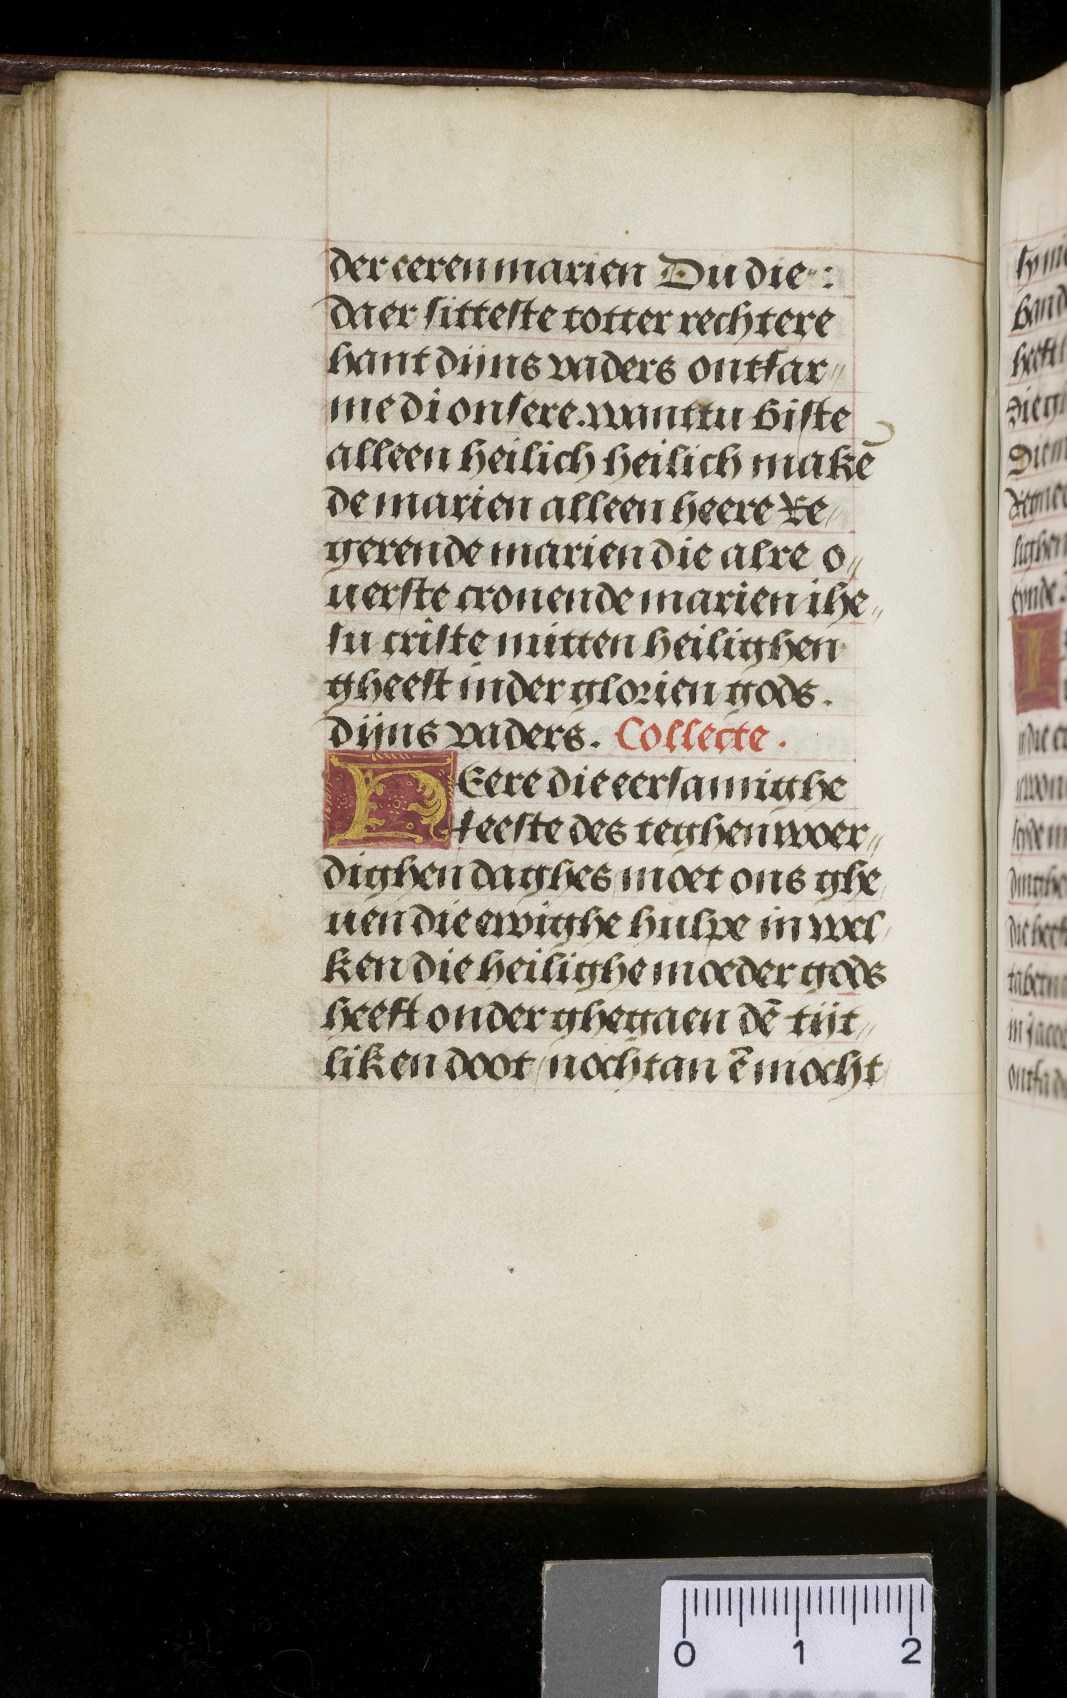 der eeren marien Du die :
daer sitteste totter rechtere
hant dijns vaders ontfar〃
me di onsere. wanttu biste
alleen heilich heilich makē
de marien alleen heere Re〃
gerende marien die alre o〃
uerste cronende marien ihe〃
su criste mitten heilighen
gheest in der glorien gods.
dijns vaders. Collecte.
HEere die eersamighe
feeste des teghenwoer〃
dighen daghes moet ons ghe
uen die ewighe hulpe in wel
ken die heilighe moeder gods
heeft onder ghegaen dē tijt〃
liken doot / nochtan ē mocht
0 1 2